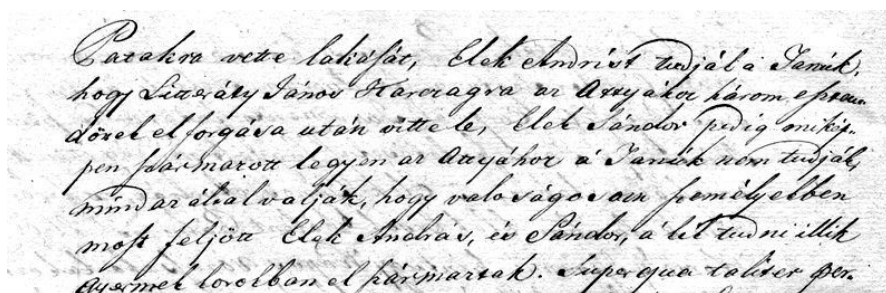 Patakra vette lakását, Elek Andrást tudják a Tanúk,
hogy Litteráty János Karczagra az Attyához három eszten-
dőnek elforgása után vitte le, Elek Sándor pedig mikép-
pen származott legyen az Attyához á Tanúk nem tudják,
mind az által valják, hogy valoságosan személyekben
most feljött Elek András, és Sándor, á kik tudni illik
Gyermek korokban el származtak. Super qua taliter per-